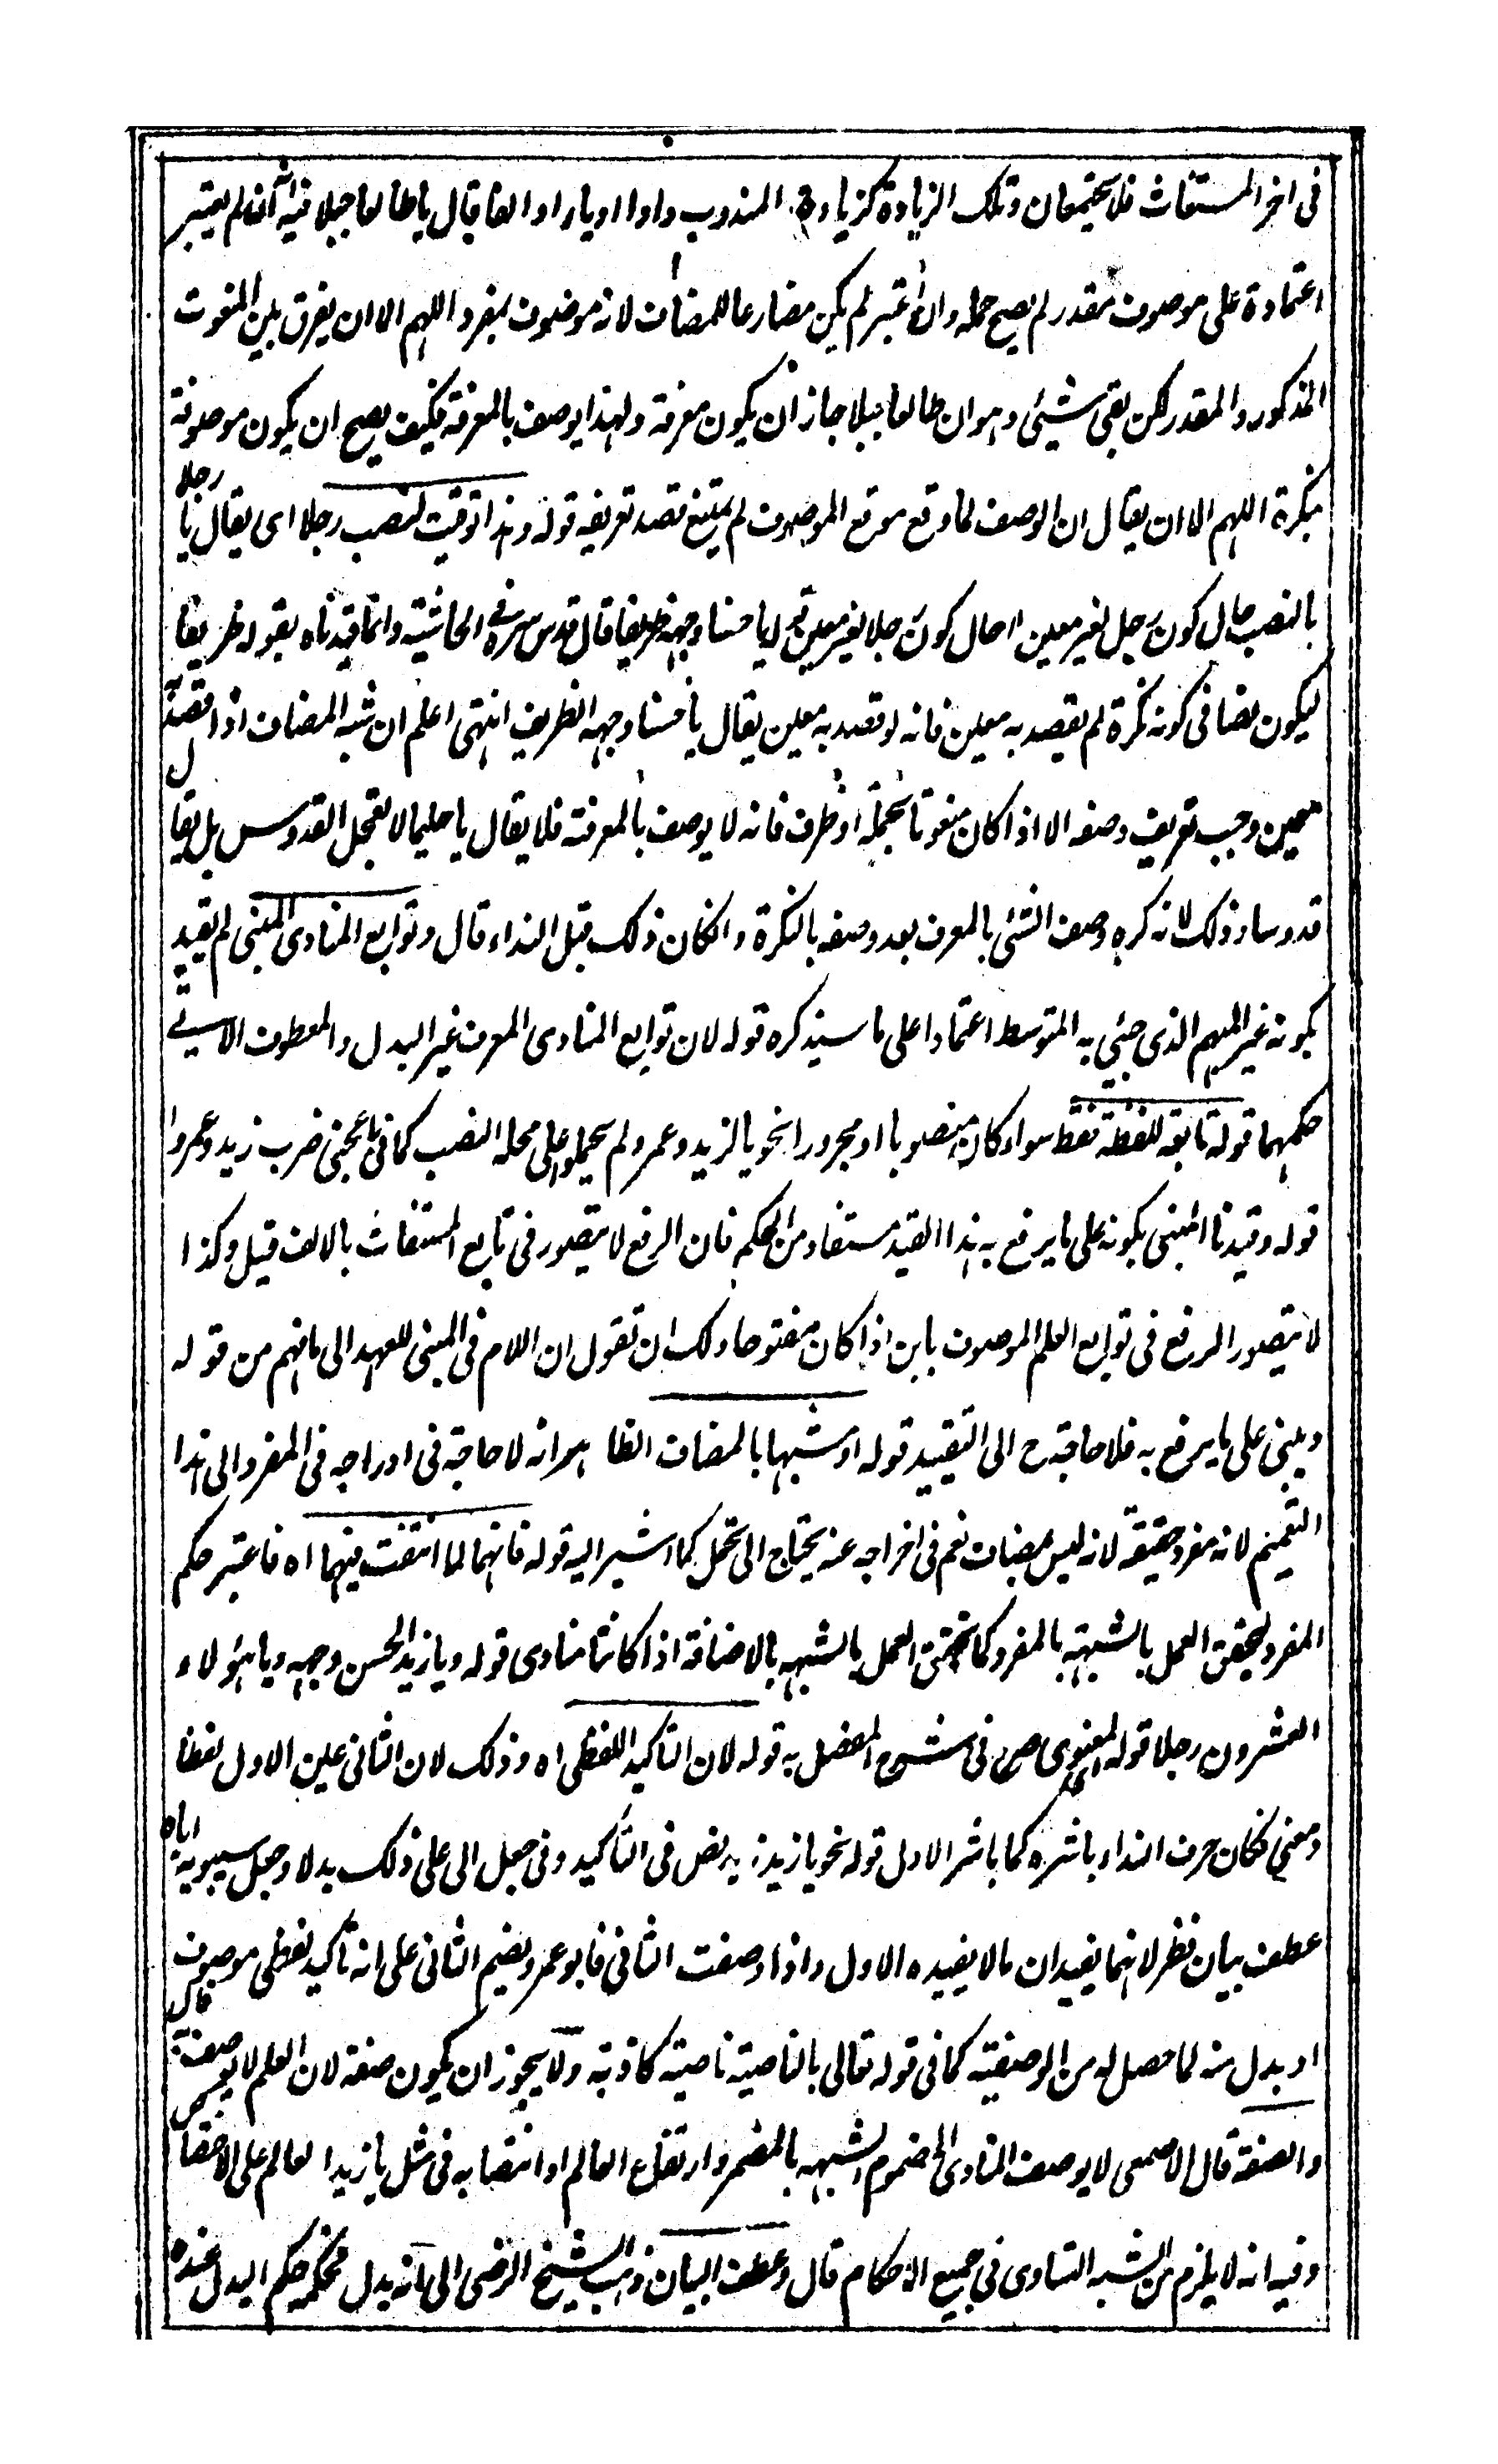 فى اخر المستغاث فلا يجتمعان وتلك الزيادة كزيادة المندوب واوا او ياء او الفا قال يا طالعا جبلا فيه انه ان لم يعتبر
اعتماده على موصوف مقدر لم يصح عمله وان اعتبر لم يكن مضارعا للمضاف لانه موصوف بمفرد اللهم الا ان يفرق بين المنعوت
المذكور والمقدر لكن بقى شيئى وهو ان طالعا جبلا جاز ان يكون معرفة ولهذا يوصف بالمعرفة فكيف يصح ان يكون موصوفه
نكرة اللهم الا ان يقال ان الوصف لما وقع موقع الموصوف لم يمتنع قصد تعريفه قوله وهذا توقيت لنصب رجلا اى يقال يا رجلا
بالنصب حال كون رجل لغير معين او حال كون رجلا لغير معين قوله يا حسنا وجهه ظريفا قال قدس سره فى الحاشية وانما قيدناه بقوله ظريفا
ليكون نصا فى كونه نكرة لم يقصد به معين فانه لو قصد به معين يقال يا حسنا وجهه الظريف انتهى اعلم ان شبه المضاف اذا قصد به
معين وجب تعريف وصفه الا اذا كان منعوتا بجملة او ظرف فانه لا يوصف بالمعرفة فلا يقال يا حليما لا تعجل القدوس بل يقال
قدوسا وذلك لانه كره وصف الشئى بالمعرف بعد وصفه بالنكرة وانكان ذلك قبل النداء قال وتوابع المنادى المبنى لم يقيد
بكونه غير المبهم الذى جيئى به المتوسط اعتمادا على ما سيذكره قوله لان توابع المنادى المعرف غير البدل والمعطوف الاتى
حكمهما قوله تابعة للفظه فقط سواء كان منصوبا او مجرورا نحو يا لزيد وعمرو ولم يحملوا على محله النصب كما فى اعجبنى ضرب زيد وعمروا
قوله وقيدنا المبنى بكونه على ما يرفع به هذا القيد مستفاد من الحكم فان الرفع لا يتصور فى تابع المستغاث بالالف قيل وكذا
لا يتصور الرفع فى توابع العلم الموصوف بابن اذا كان مفتوحا ولك ان تقول ان اللام فى المبنى للعهد الى ما فهم من قوله
ويبنى على ما يرفع به فلا حاجة ح الى التقييد قوله او مشبها بالمضاف الظاهر انه لا حاجة فى ادراجه فى المفرد الى هذا
التعميم لانه مفرد حقيقة لانه ليس بمضاف نعم فى اخراجه عنه يحتاج الى تمحل كما اشير اليه قوله فانهما لما انتفت فيهما اه فاعتبر حكم
المفرد ليحقق العمل بالشبهة بالمفرد كما تحقق العمل بالشبهه بالاضافة اذا كانتا منادى قوله ويا زيد الحسن وجهه ويا هؤلاء
العشرون رجلا قوله المعنوى صرح فى شرح المفصل به قوله لان التاكيد اللفظى اه وذلك لان الثانى عين الاول لفظا
ومعنى فكان حرف النداء باشره كما باشر الاول قوله نحو يا زيد زيد نص فى التأكيد وفى جعل الى على ذلك بدلا وجعل سيبويه اياه
عطف بيان نظر لانهما يفيدان ما لا يفيده الاول واذا وصفت الثانى فابو عمرو يضم الثانى على انه تأكيد لفظى موصوف
او بدل منه لما حصل له من الوصفية كما فى قوله تعالى بالناصية ناصية كاذبة ولا يجوز ان يكون صفة لان العلم لا يوصف به قال
والصفة قال الاصمعى لا يوصف المنادى المضموم لشبهه بالمضمر وارتفاع العالم او انتصابه فى مثل يا زيد العالم على الاختصاص
وفيه انه لا يلزم من الشبه التساوى فى جميع الاحكام قال وعطف البيان ذهب الشيخ الرضى الى انه بدل فحكمه حكم البدل عنده